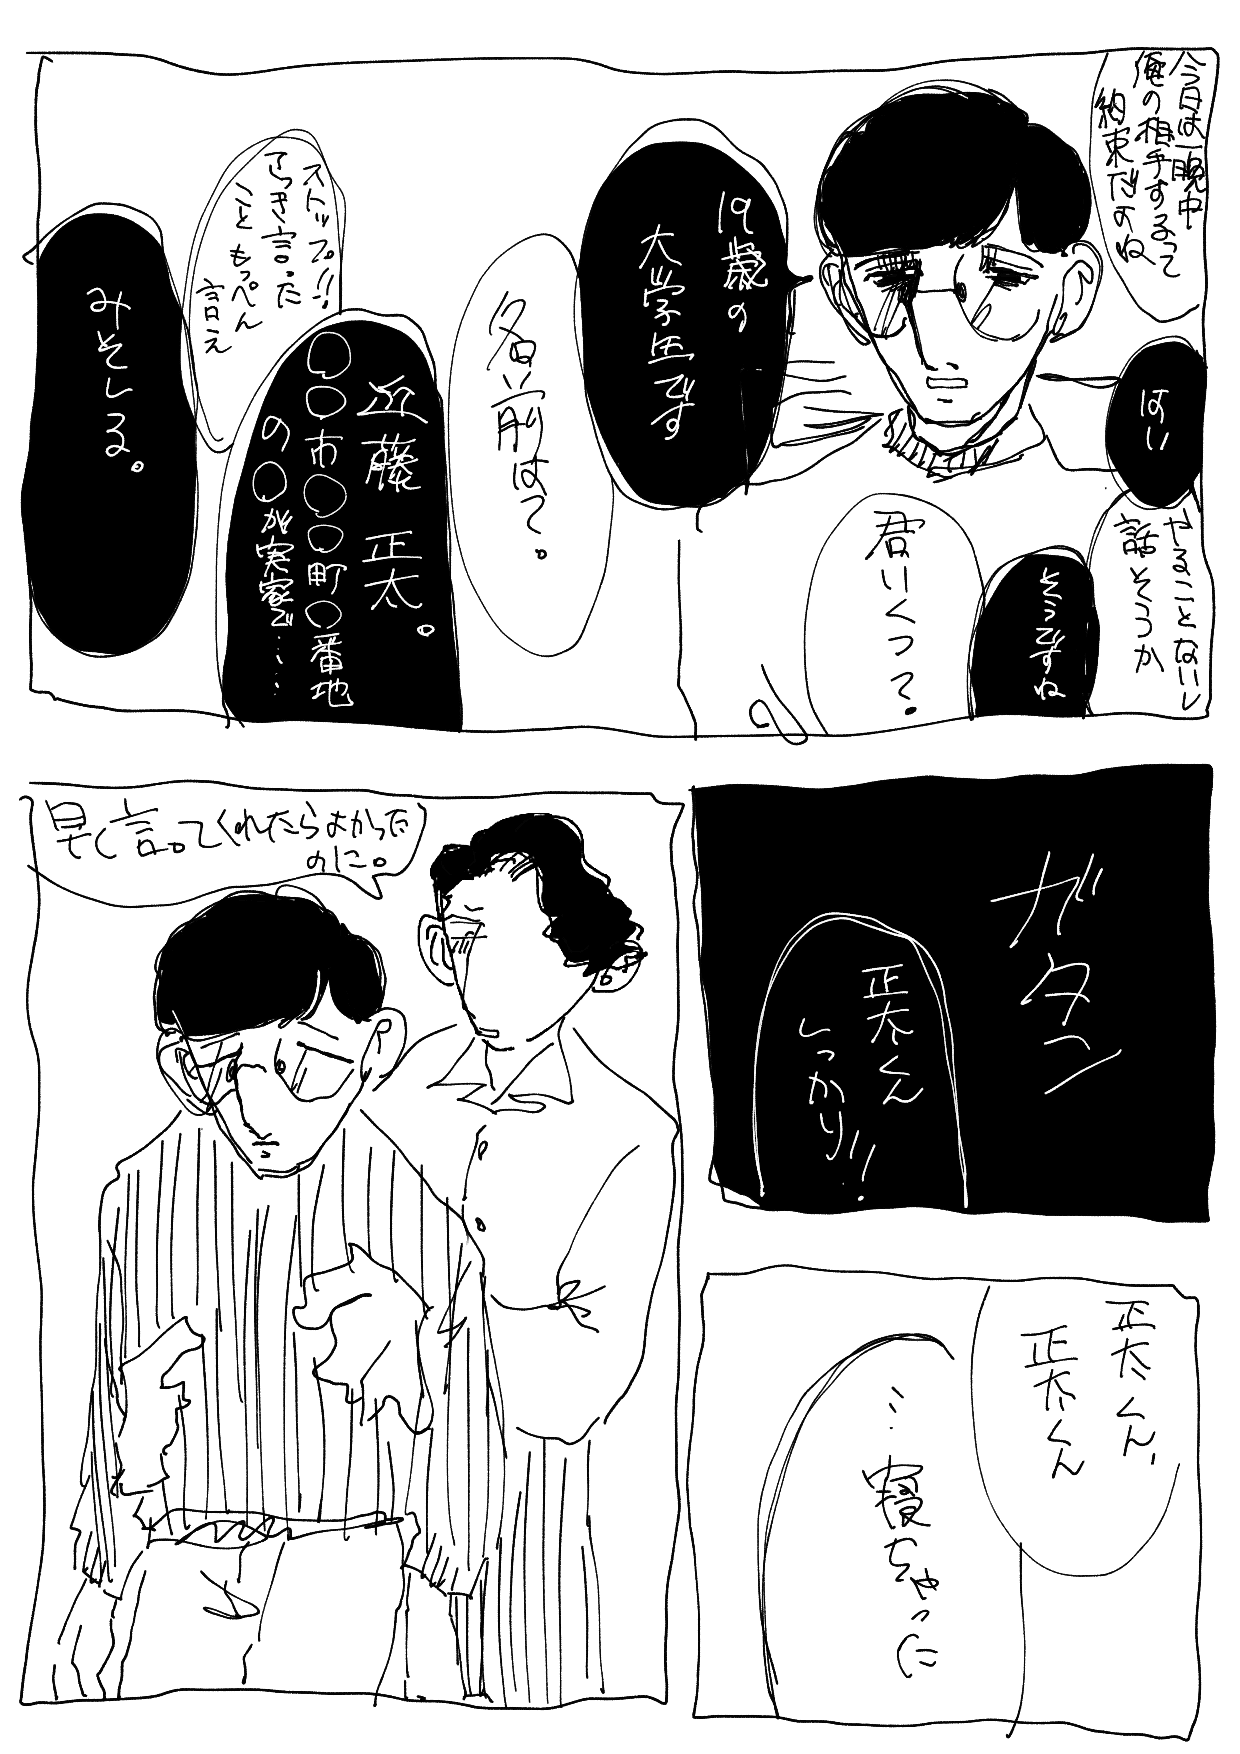 今日は一晩中
俺の相手するって
約束だよね
はい
やることないし
話そうか
そうですね
君いくつ?
19歳の
大学生です
名前は?
近藤正太。
〇〇市〇〇町〇番地
の〇が実家で……
ストップ!!
さっき言った
こともっぺん
言え
みそしる。
ガタン
正太くん
しっかり!!
正太くん、
正太くん
…寝ちゃった
早く言ってくれたらよかった
のに。